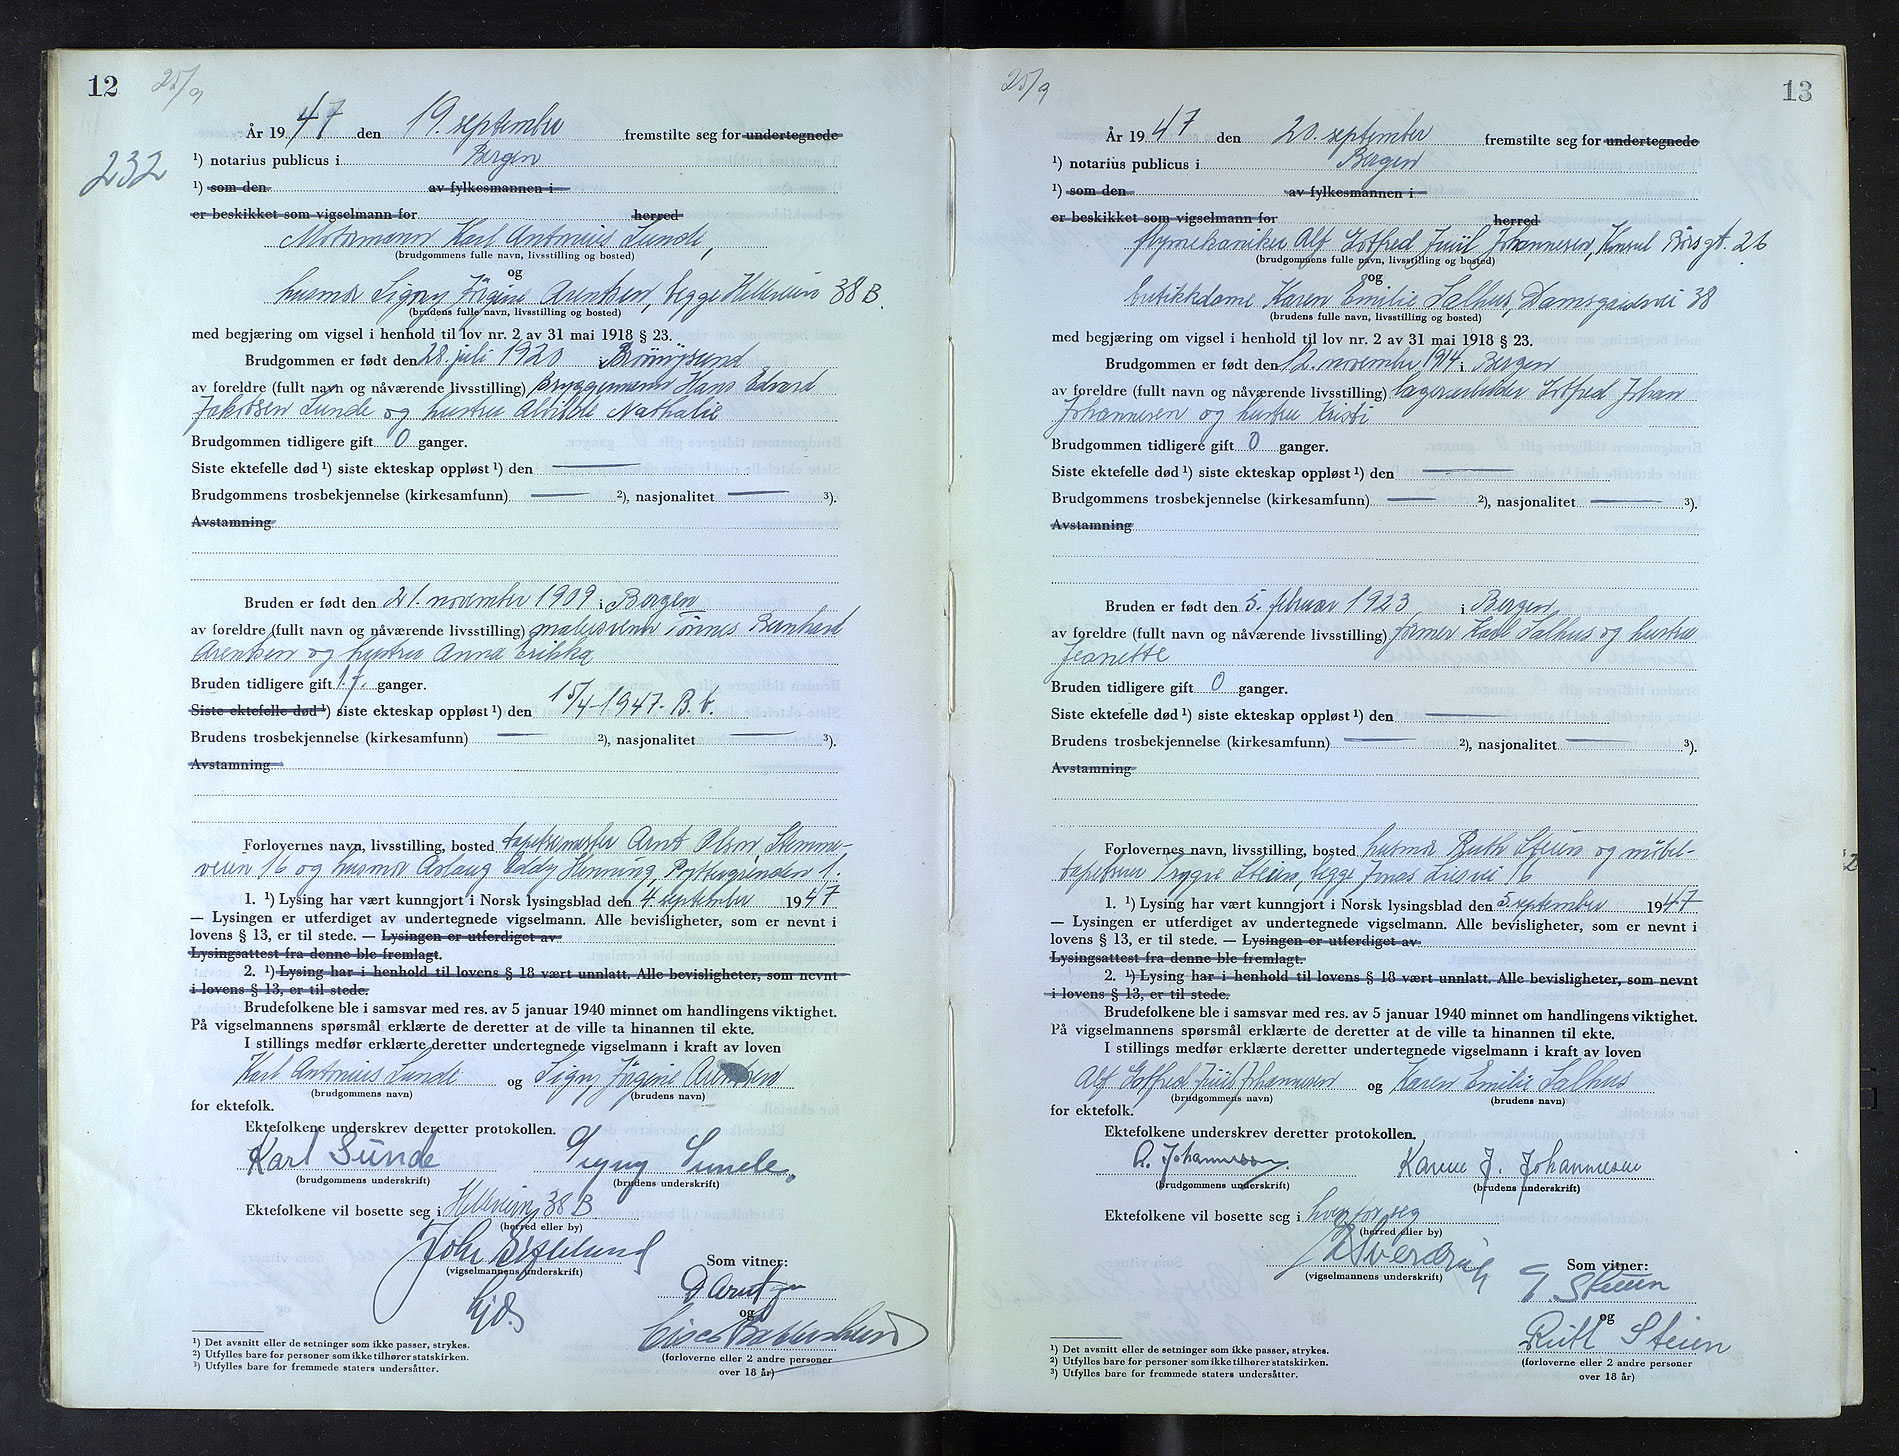 12 25/9
År 1947 den 19. september fremstilte seg for undertegnede
232
¹) notarius publicus i Bergen
¹) som den av fylkesmannen i
er beskikket som vigselmann for herred
Motormann Karl Antonius Sunde,
(brudgommens fulle navn, livsstilling og bosted)
og
husmor Signy Jørgine Arentsen, begge Helleveien 38 B.
(brudens fulle navn, livsstilling og bosted)
med begjæring om vigsel i henhold til lov nr. 2 av 31 mai 1918 § 23.
Brudgommen er født den 28. juli 1920 i Brønnøysund
av foreldre (fullt navn og nåværende livsstilling) Bryggemann Hans Edvard
Jakobsen Sunde og hustru Alvilde Nathalie
Brudgommen tidligere gift 0 ganger.
Siste ektefelle død ¹) siste ekteskap oppløst ¹) den —
Brudgommens trosbekjennelse (kirkesamfunn) — ²), nasjonalitet — ³).
Avstamning
Bruden er født den 21. november 1909 i Bergen
av foreldre (fullt navn og nåværende livsstilling) malersvenn Tønnes Bernhard
Arentsen og hustru Anna Erikka
Bruden tidligere gift 1. ganger.
Siste ektefelle død ¹) siste ekteskap oppløst ¹) den 15/4-1947. B.b.
Brudens trosbekjennelse (kirkesamfunn) — ²), nasjonalitet — ³).
Avstamning
Forlovernes navn, livsstilling, bosted tapetsermester Arnt Olsen, Stemme-
veien 16 og husmor Aslaug Eddy Henning, 1.
1. ¹) Lysing har vært kunngjort i Norsk lysingsblad den 4 september 1947
— Lysingen er utferdiget av undertegnede vigselmann. Alle bevisligheter, som er nevnt i
lovens § 13, er til stede. — Lysingen er utferdiget av
Lysingsattest fra denne ble fremlagt.
2. ¹) Lysing har i henhold til lovens § 18 vært unnlatt. Alle bevisligheter, som nevnt
i lovens § 13, er til stede.
Brudefolkene ble i samsvar med res. av 5 januar 1940 minnet om handlingens viktighet.
På vigselmannens spørsmål erklærte de deretter at de ville ta hinannen til ekte.
I stillings medfør erklærte deretter undertegnede vigselmann i kraft av loven
Karl Antonius Sunde og Signy Jørgine Arentsen
(brudgommens navn) (brudens navn)
for ektefolk.
Ektefolkene underskrev deretter protokollen.
Karl Sunde Signy Sunde
(brudgommens underskrift) (brudens underskrift)
Ektefolkene vil bosette seg i Helleveien 38 B
(herred eller by)
(vigselmannens underskrift) Som vitner:
og
(forloverne eller 2 andre personer
over 18 år)
¹) Det avsnitt eller de setninger som ikke passer, strykes.
²) Utfylles bare for personer som ikke tilhører statskirken.
³) Utfylles bare for fremmede staters undersåtter.
25/9 13
År 1947 den 20. september fremstilte seg for undertegnede
¹) notarius publicus i Bergen
¹) som den av fylkesmannen i
er beskikket som vigselmann for herred
flymekaniker Alf Gotfred Juul Johannesen, Konsul Børs gt. 26
(brudgommens fulle navn, livsstilling og bosted)
og
butikkdame Karen Emilie Salhus, Damsgårdsvei 38
(brudens fulle navn, livsstilling og bosted)
med begjæring om vigsel i henhold til lov nr. 2 av 31 mai 1918 § 23.
Brudgommen er født den 12. november 1914 i Bergen
av foreldre (fullt navn og nåværende livsstilling) lagerarbeider Gotfred Johan
Johannesen og hustru Kristi
Brudgommen tidligere gift 0 ganger.
Siste ektefelle død ¹) siste ekteskap oppløst ¹) den —
Brudgommens trosbekjennelse (kirkesamfunn) — ²), nasjonalitet — ³).
Avstamning
Bruden er født den 5. februar 1923 i Bergen
av foreldre (fullt navn og nåværende livsstilling) former Karl Salhus og hustru
Jeanette
Bruden tidligere gift 0 ganger.
Siste ektefelle død ¹) siste ekteskap oppløst ¹) den —
Brudens trosbekjennelse (kirkesamfunn) — ²), nasjonalitet — ³).
Avstamning
Forlovernes navn, livsstilling, bosted husmor Ruth Steien og møbel-
tapetserer Trygve Steien, begge Jonas Liesvei 16
1. ¹) Lysing har vært kunngjort i Norsk lysingsblad den 5 september 1947
— Lysingen er utferdiget av undertegnede vigselmann. Alle bevisligheter, som er nevnt i
lovens § 13, er til stede. — Lysingen er utferdiget av
Lysingsattest fra denne ble fremlagt.
2. ¹) Lysing har i henhold til lovens § 18 vært unnlatt. Alle bevisligheter, som nevnt
i lovens § 13, er til stede.
Brudefolkene ble i samsvar med res. av 5 januar 1940 minnet om handlingens viktighet.
På vigselmannens spørsmål erklærte de deretter at de ville ta hinannen til ekte.
I stillings medfør erklærte deretter undertegnede vigselmann i kraft av loven
Alf Gotfred Juul Johannesen og Karen Emilie Salhus
(brudgommens navn) (brudens navn)
for ektefolk.
Ektefolkene underskrev deretter protokollen.
A. Johannesen. Karen J. Johannesen
(brudgommens underskrift) (brudens underskrift)
Ektefolkene vil bosette seg i hver for seg
(herred eller by)
(vigselmannens underskrift) Som vitner:
T Steien
og
Ruth Steien
(forloverne eller 2 andre personer
over 18 år)
¹) Det avsnitt eller de setninger som ikke passer, strykes.
²) Utfylles bare for personer som ikke tilhører statskirken.
³) Utfylles bare for fremmede staters undersåtter.